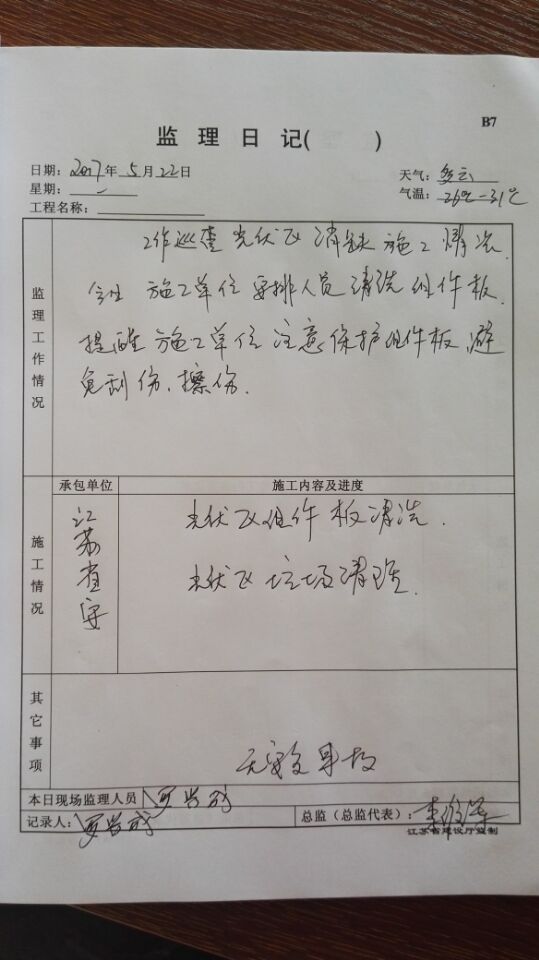 B7
监 理 日 记( )
日期: 2017年 5月 22日
天气: 多云
星期: 一
气温: 26℃-31℃
工程名称:
监理工作情况
工作巡查光伏区清缺施工情况.
今日施工单位安排人员清洗组件板.
提醒施工单位注意保护组件板,避
免刮伤、擦伤.
施工情况
承包单位
施工内容及进度
江苏省安
光伏区组件板清洗.
光伏区垃圾清理.
其它事项
无安全事故
本日现场监理人员
记录人:
总监（总监代表）:
江苏省建设厅监制